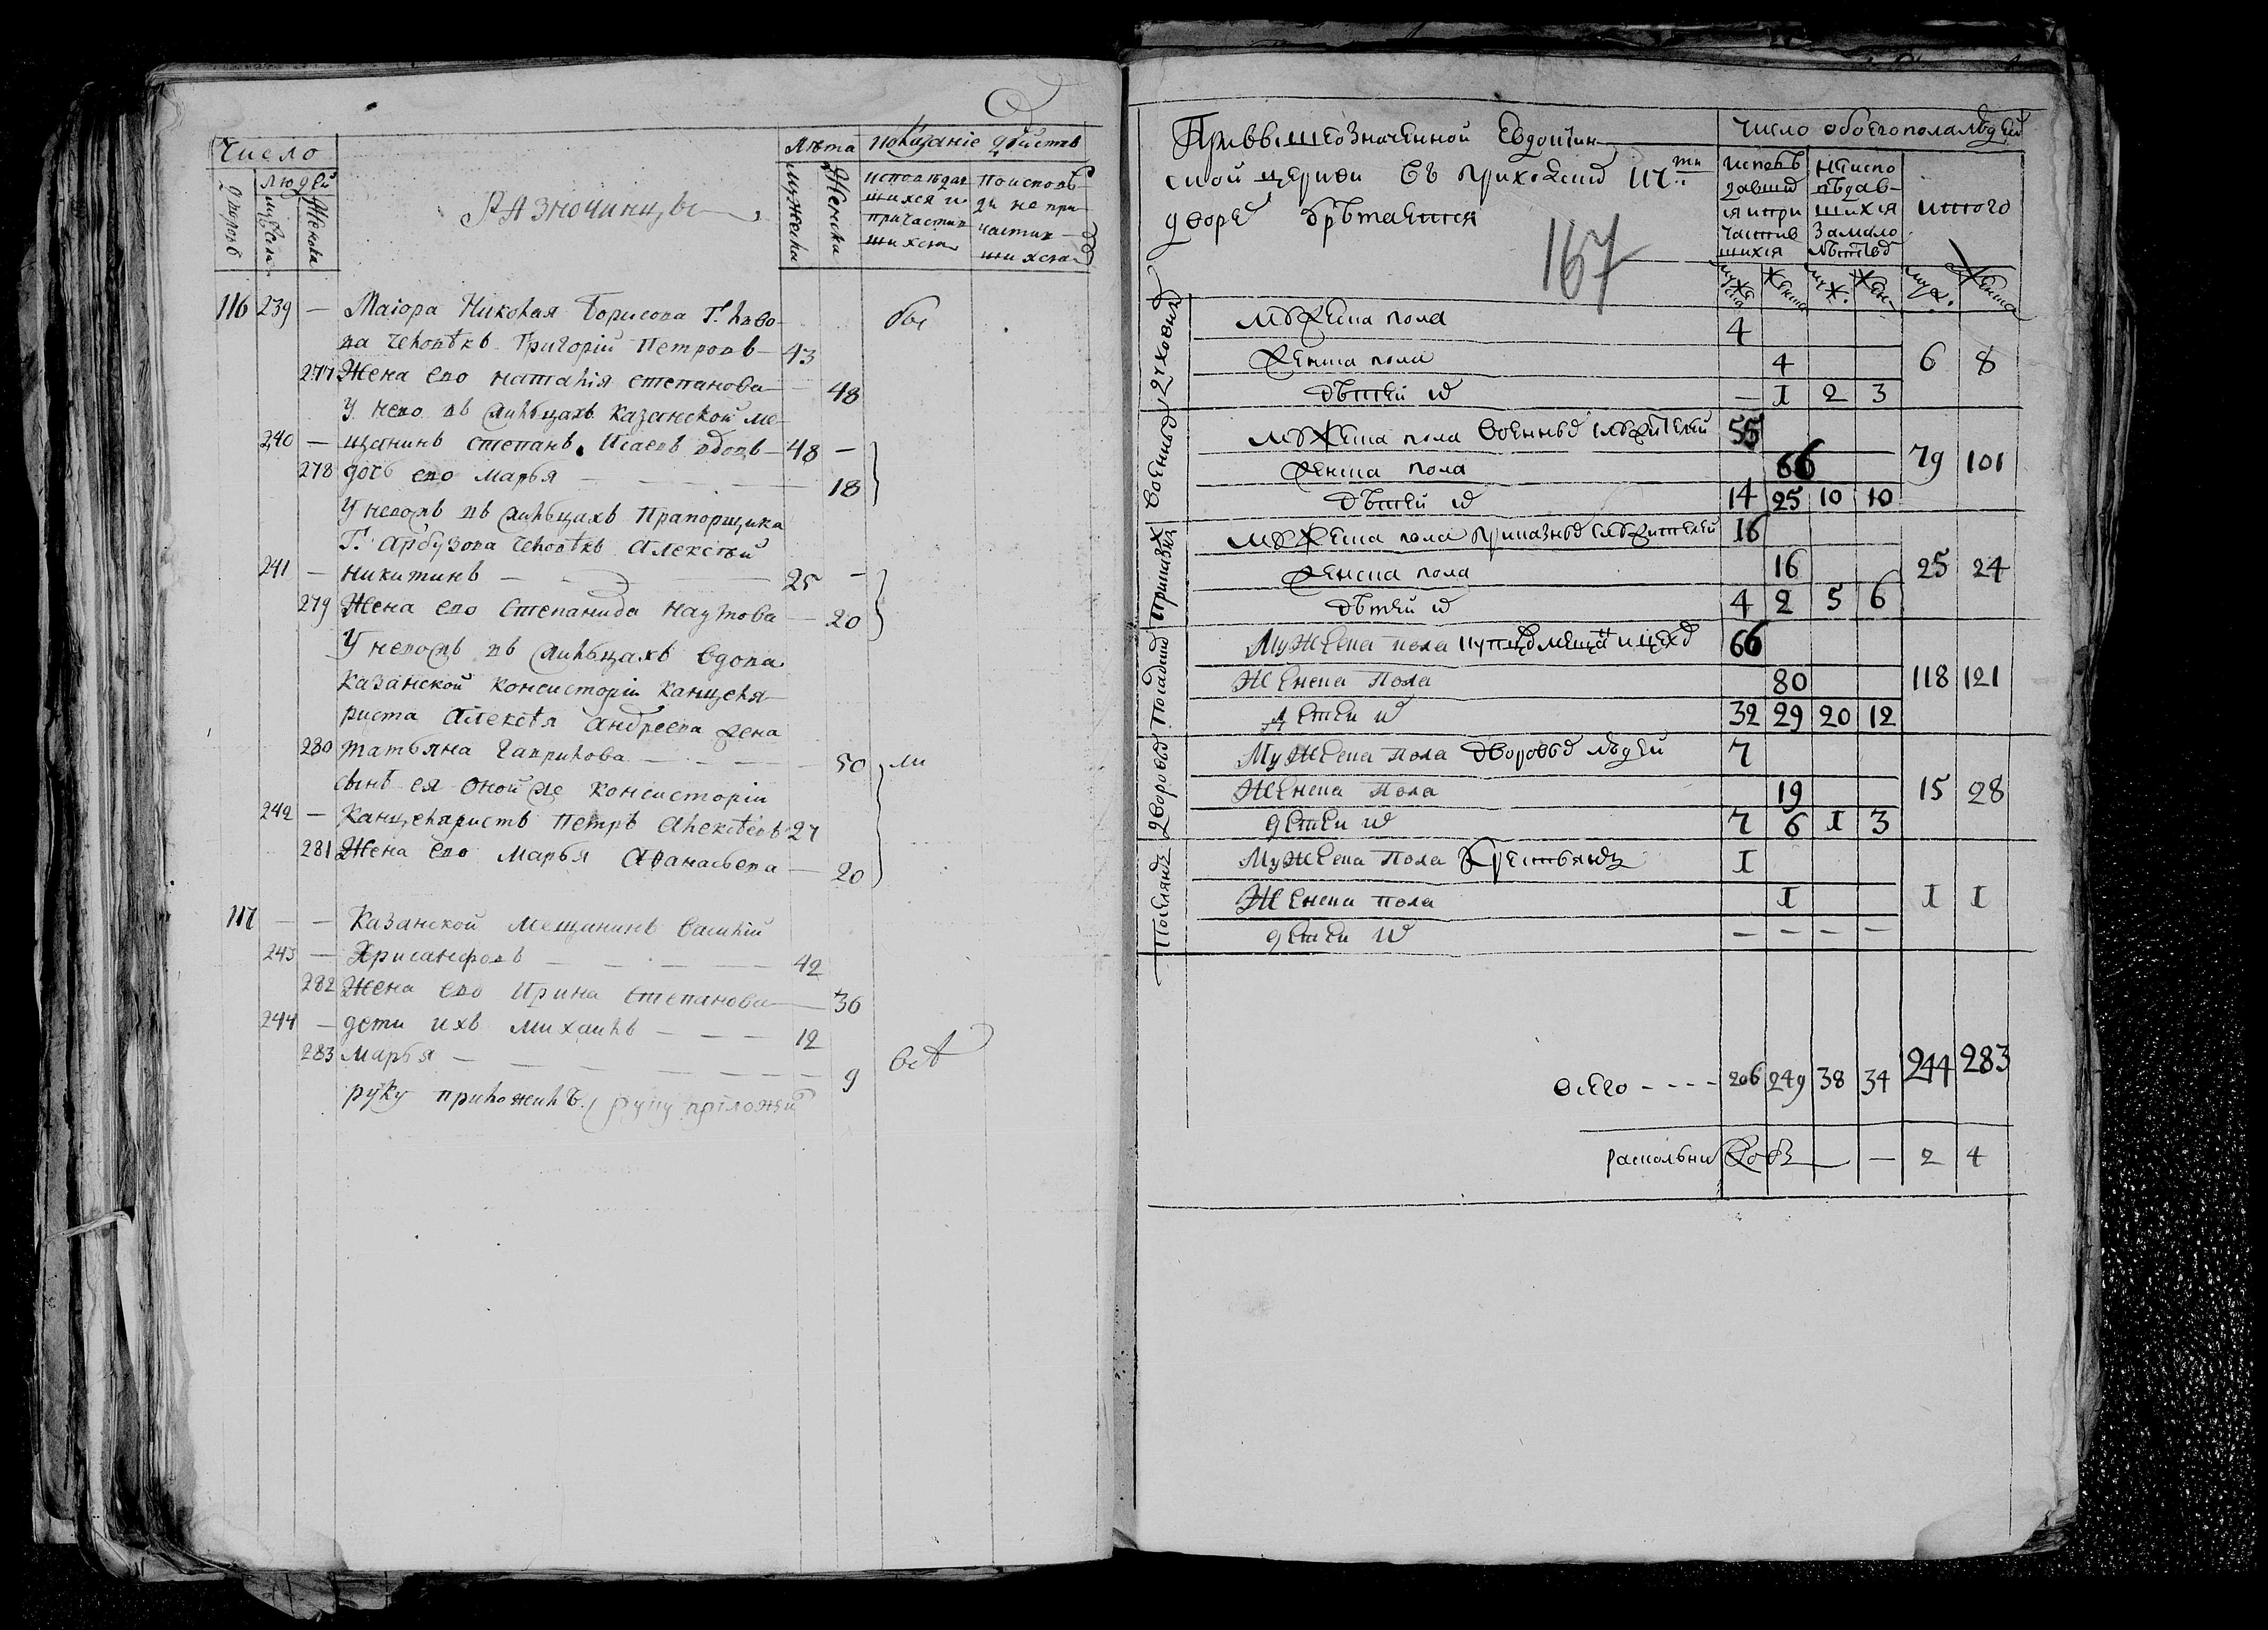 Число
Лѣта
показаніе действ
людей
дворовъ
мужеска
Женска
Разночинцы
мужеска
Женска
исповѣдав
шихся и
причастив
шихся
поисповѣ
ди не при
частив
шихся
116 239 — Маіора Николая Борисова Г. Льво
ва человѣкъ Григорій Петровъ — 43
бы
277 Жена ево наталія степанова — 48
У нево въ жильцахъ казанской ме
240 — щанинъ степанъ Исаевъ вдовъ — 48 —
278 дочь ево марья — 18
У невожъ въ жильцахъ Прапорщика
Г. Арбузова человѣкъ Алексѣй
241 — никитинъ — 25 —
279 Жена ево Степанида наумова — 20
У невожъ въ жильцахъ вдова
казанской консисторіи канцеля
риста Алексѣя андреева жена
280 татьяна гаврилова — 50
ли
сынъ ея оной же консисторіи
242 — Канцеларистъ Петръ Алексѣевъ 27
281 Жена ево Марья Аѳанасьева — 20
117 — — Казанской мещанинъ василій
243 — Хрисанфовъ — 42
282 Жена ево Ирина степанова — 36
244 — дети ихъ михаилъ — 12
283 марья — 9
всѣ
руку приложилъ. руку приложи
При вышеозначенной Евдокіин
ской церкви въ приходскихъ 117ти
дворехъ обрѣтается
167
Число обоего пола людей
исповѣ
давших
ся и при
частив
шихся
неиспо
вѣдав
шихся
за мало
лѣтствъ
итого
мужеска
женска
муж.
жен.
муж.
женска
Духовныхъ
мужеска пола 4
женска пола 4
6 8
дѣтей их — 1 2 3
военныхъ
мужеска пола военныхъ служителей 55
женска пола 66
79 101
дѣтей их 14 25 10 10
Приказных
мужеска пола приказныхъ служителей 16
женска пола 16
25 24
дѣтей их 4 2 5 6
Посадских
Мужеска пола 66
Женска пола 80
118 121
детеи их 32 29 20 12
дворовых
Мужеска пола дворовых людей 7
Женска пола 19
15 28
детеи их 7 6 1 3
Поселянъ
Мужеска пола Крестьянъ 1
Женска пола 1
1 1
детеи их — — — —
всего - - - - 206 249 38 34 244 283
раскольниковъ — — 2 4